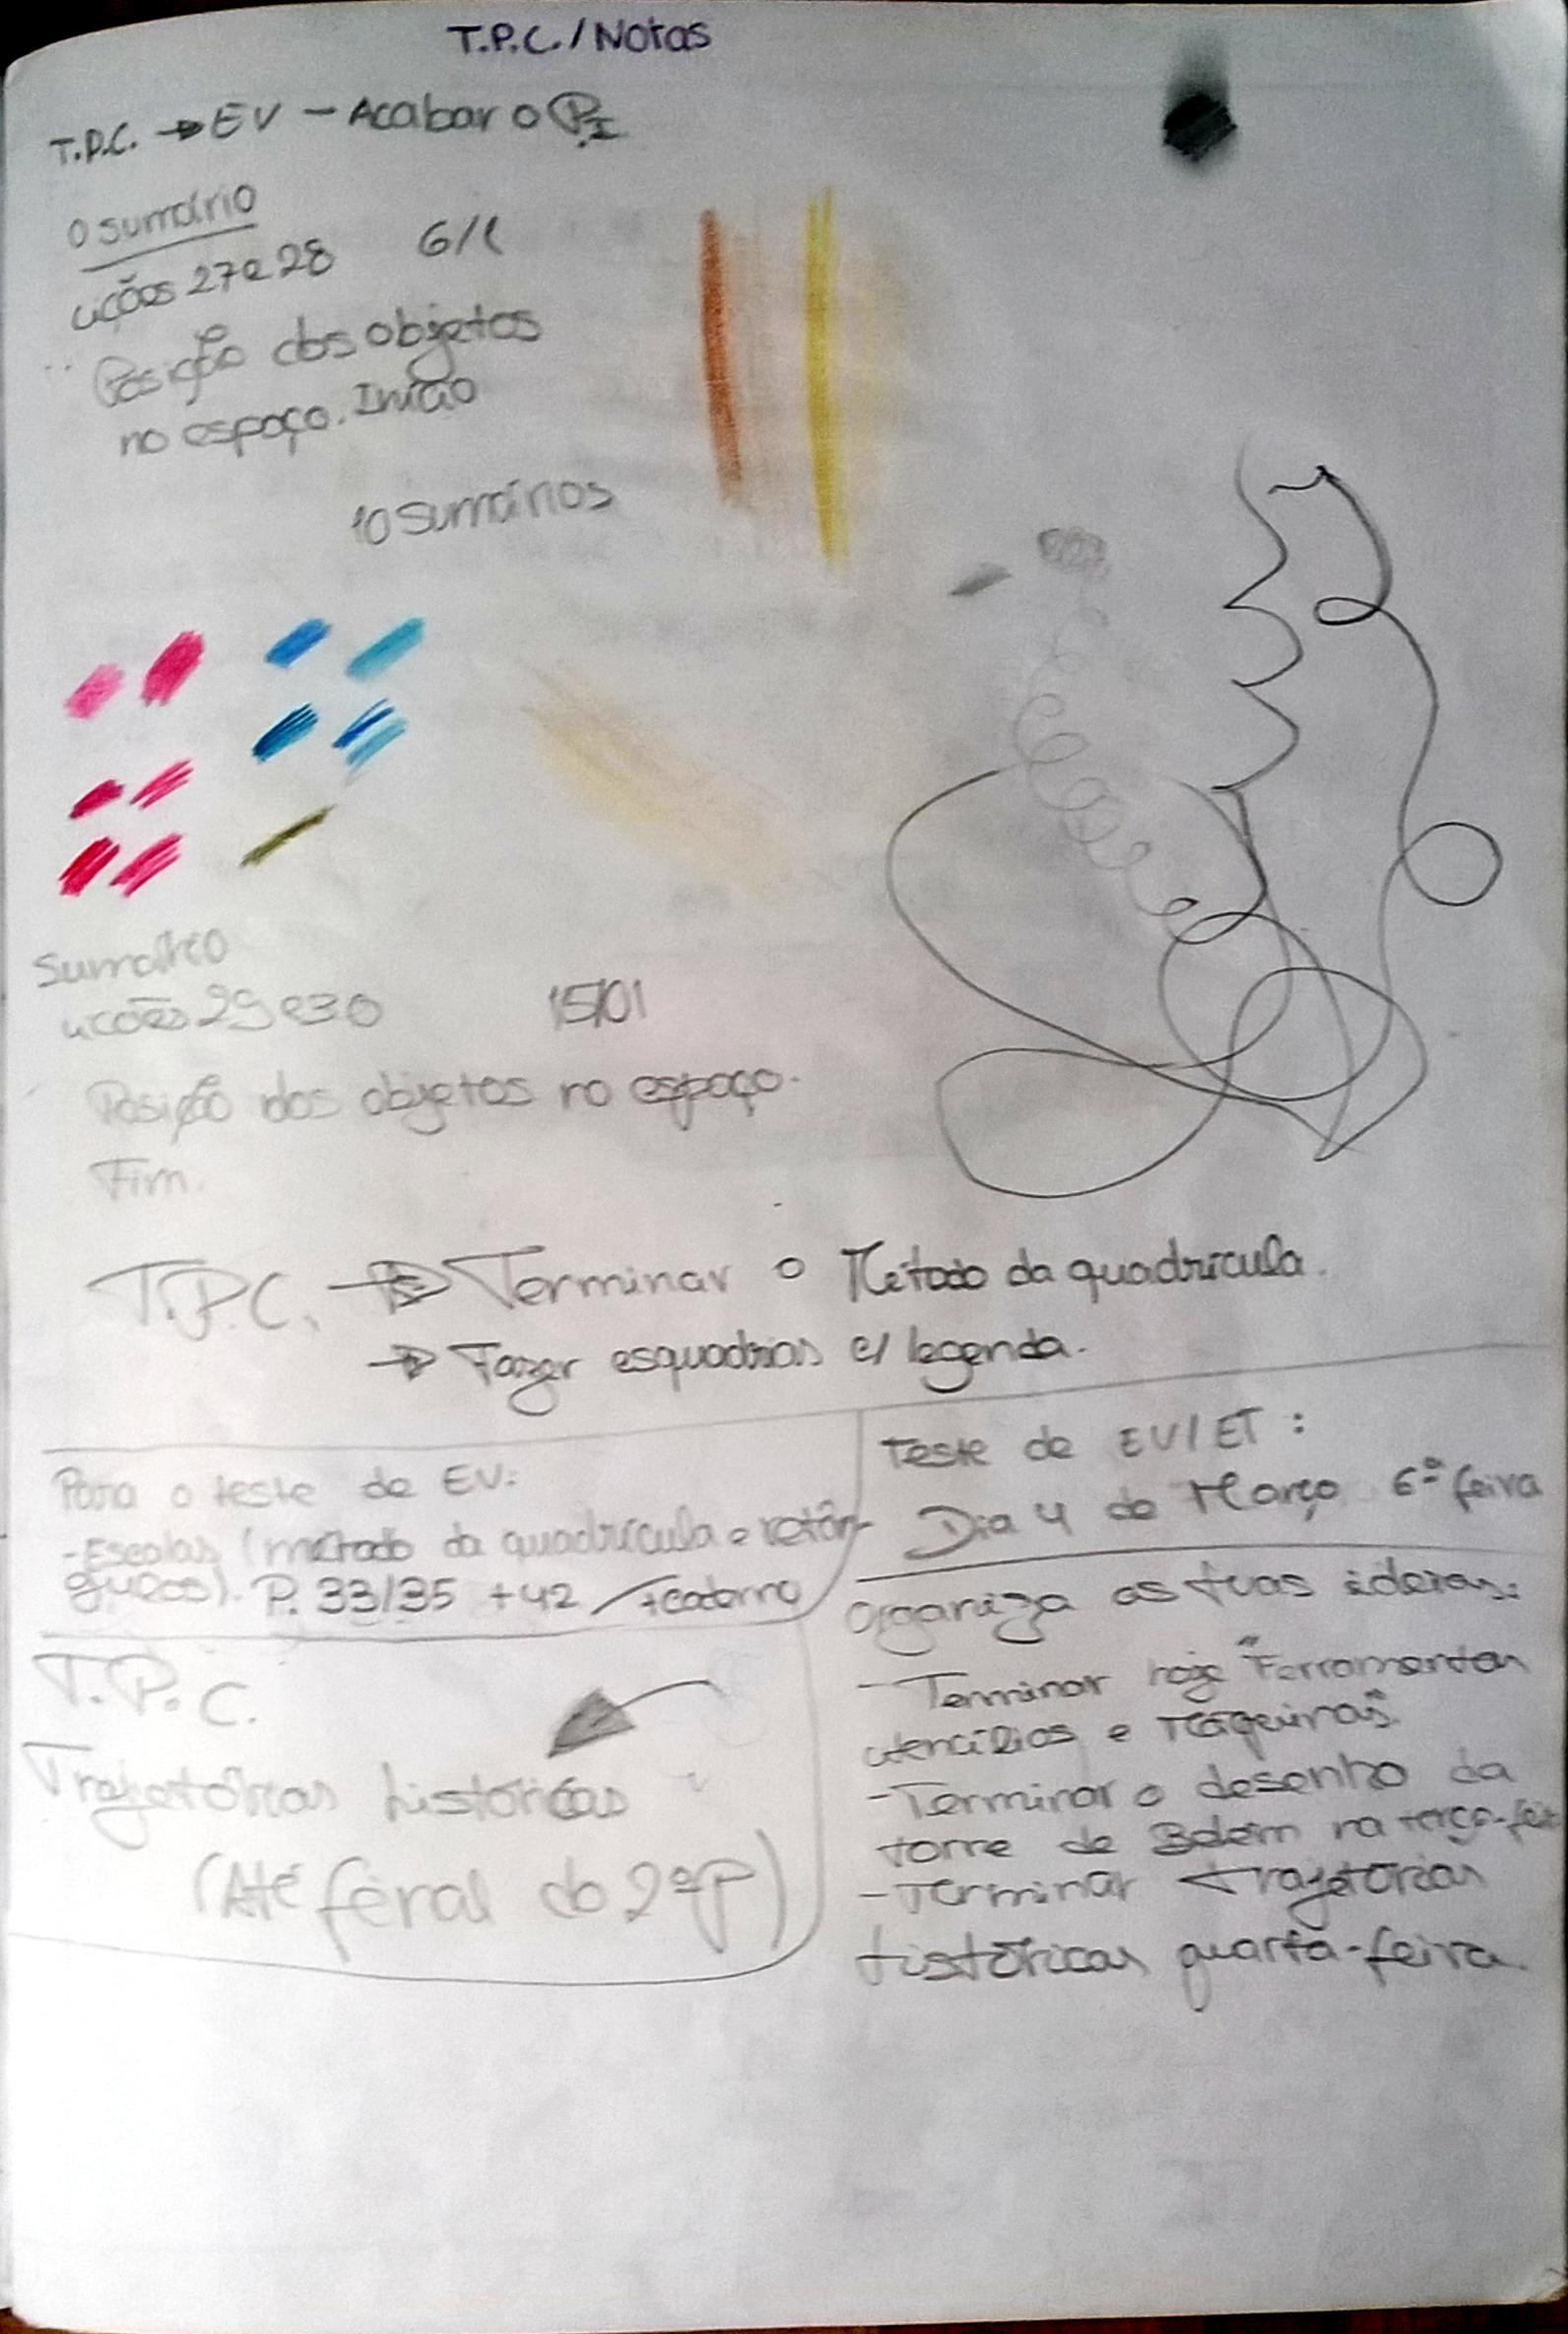 T.P.C./Notas
T.P.C. → EV - Acabar o P.I
O sumário
Lições 27 e 28 6/1
Posição dos objetos
no espaço. Início
10 sumários
Sumário
Lições 29 e 30 15/01
Posição dos objetos no espaço.
Fim.
T.P.C. → Terminar o Método da quadrícula.
→ Fazer esquadrias c/ legenda.
Para o teste de EV:
- Escalas (método da quadrícula e retân-
gulos). P. 33/35 + 42 / + caderno
T.P.C.
Trajetórias históricas
(Até final do 2ºP)
Teste de EV/ET:
Dia 4 de Março 6ª feira
Organiza as tuas ideias:
- Terminar hoje "Ferramentas
utencílios e Máquinas".
- Terminar o desenho da
torre de Belém na terça-feir
- Terminar Trajetórias
históricas quarta-feira.